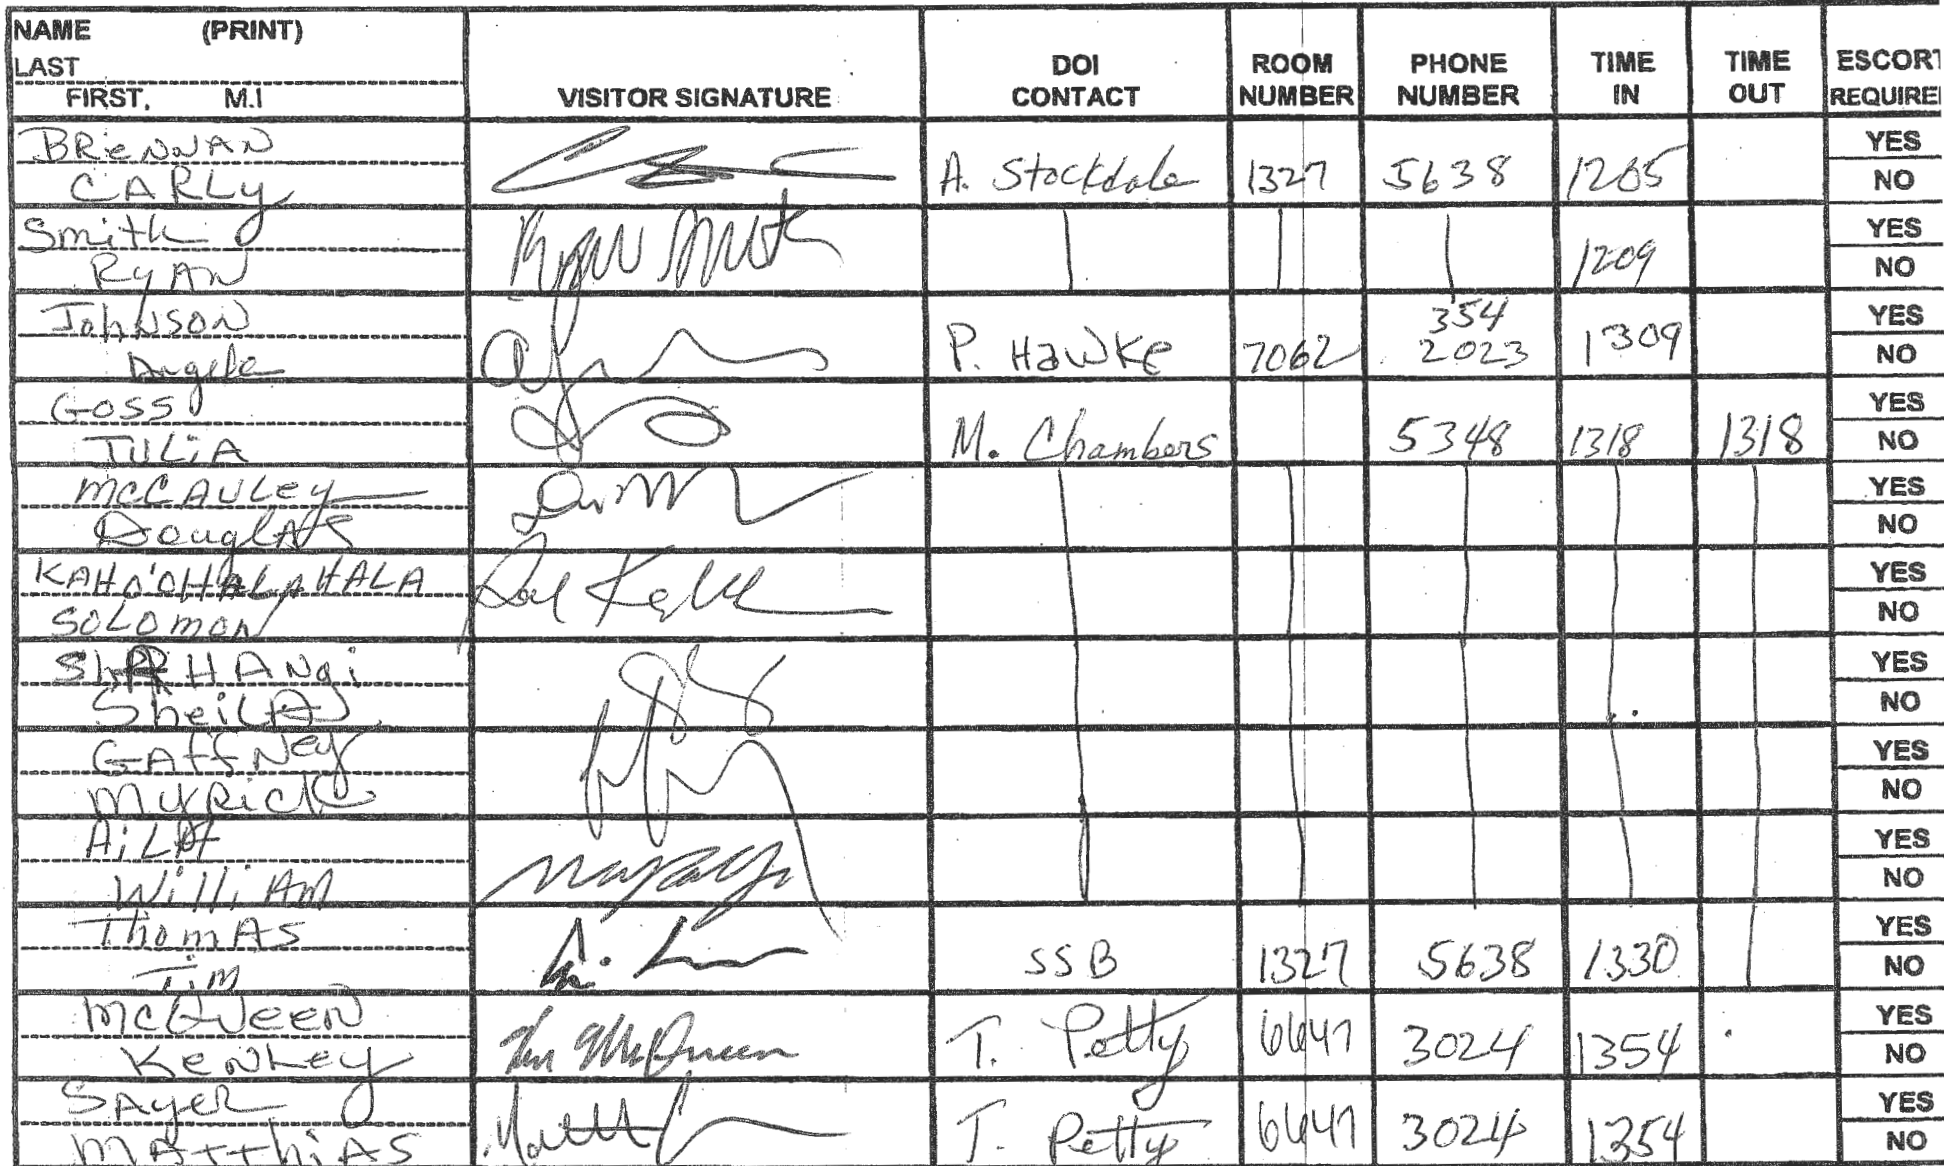 NAME (PRINT)
LAST
FIRST, M.I
VISITOR SIGNATURE
DOI CONTACT
ROOM NUMBER
PHONE NUMBER
TIME IN
TIME OUT
ESCORT REQUIRE
BRENNAN
CARLY
A. Stockdale 1327 5638 1205
YES
NO
Smith
RYAN
Ryan Smith
1209
YES
NO
Johnson
Angela
P. HAWKE 7062 354 2023 1309
YES
NO
GOSS
JULIA
M. Chambers 5348 1318 1318
YES
NO
McCAULEY
DouglAS
YES
NO
KAHO'OHALAHALA
SOLOMON
YES
NO
SheilA
YES
NO
GAffNey
MyRick
YES
NO
AiLA
WilliAM
YES
NO
ThomAS
Tim
SSB 1327 5638 1330
YES
NO
McQueeN
KeNLey
Ken McQueen
T. Petty 6647 3024 1354
YES
NO
SAyeR
MATThiAS
T. Petty 6647 3024 1354
YES
NO